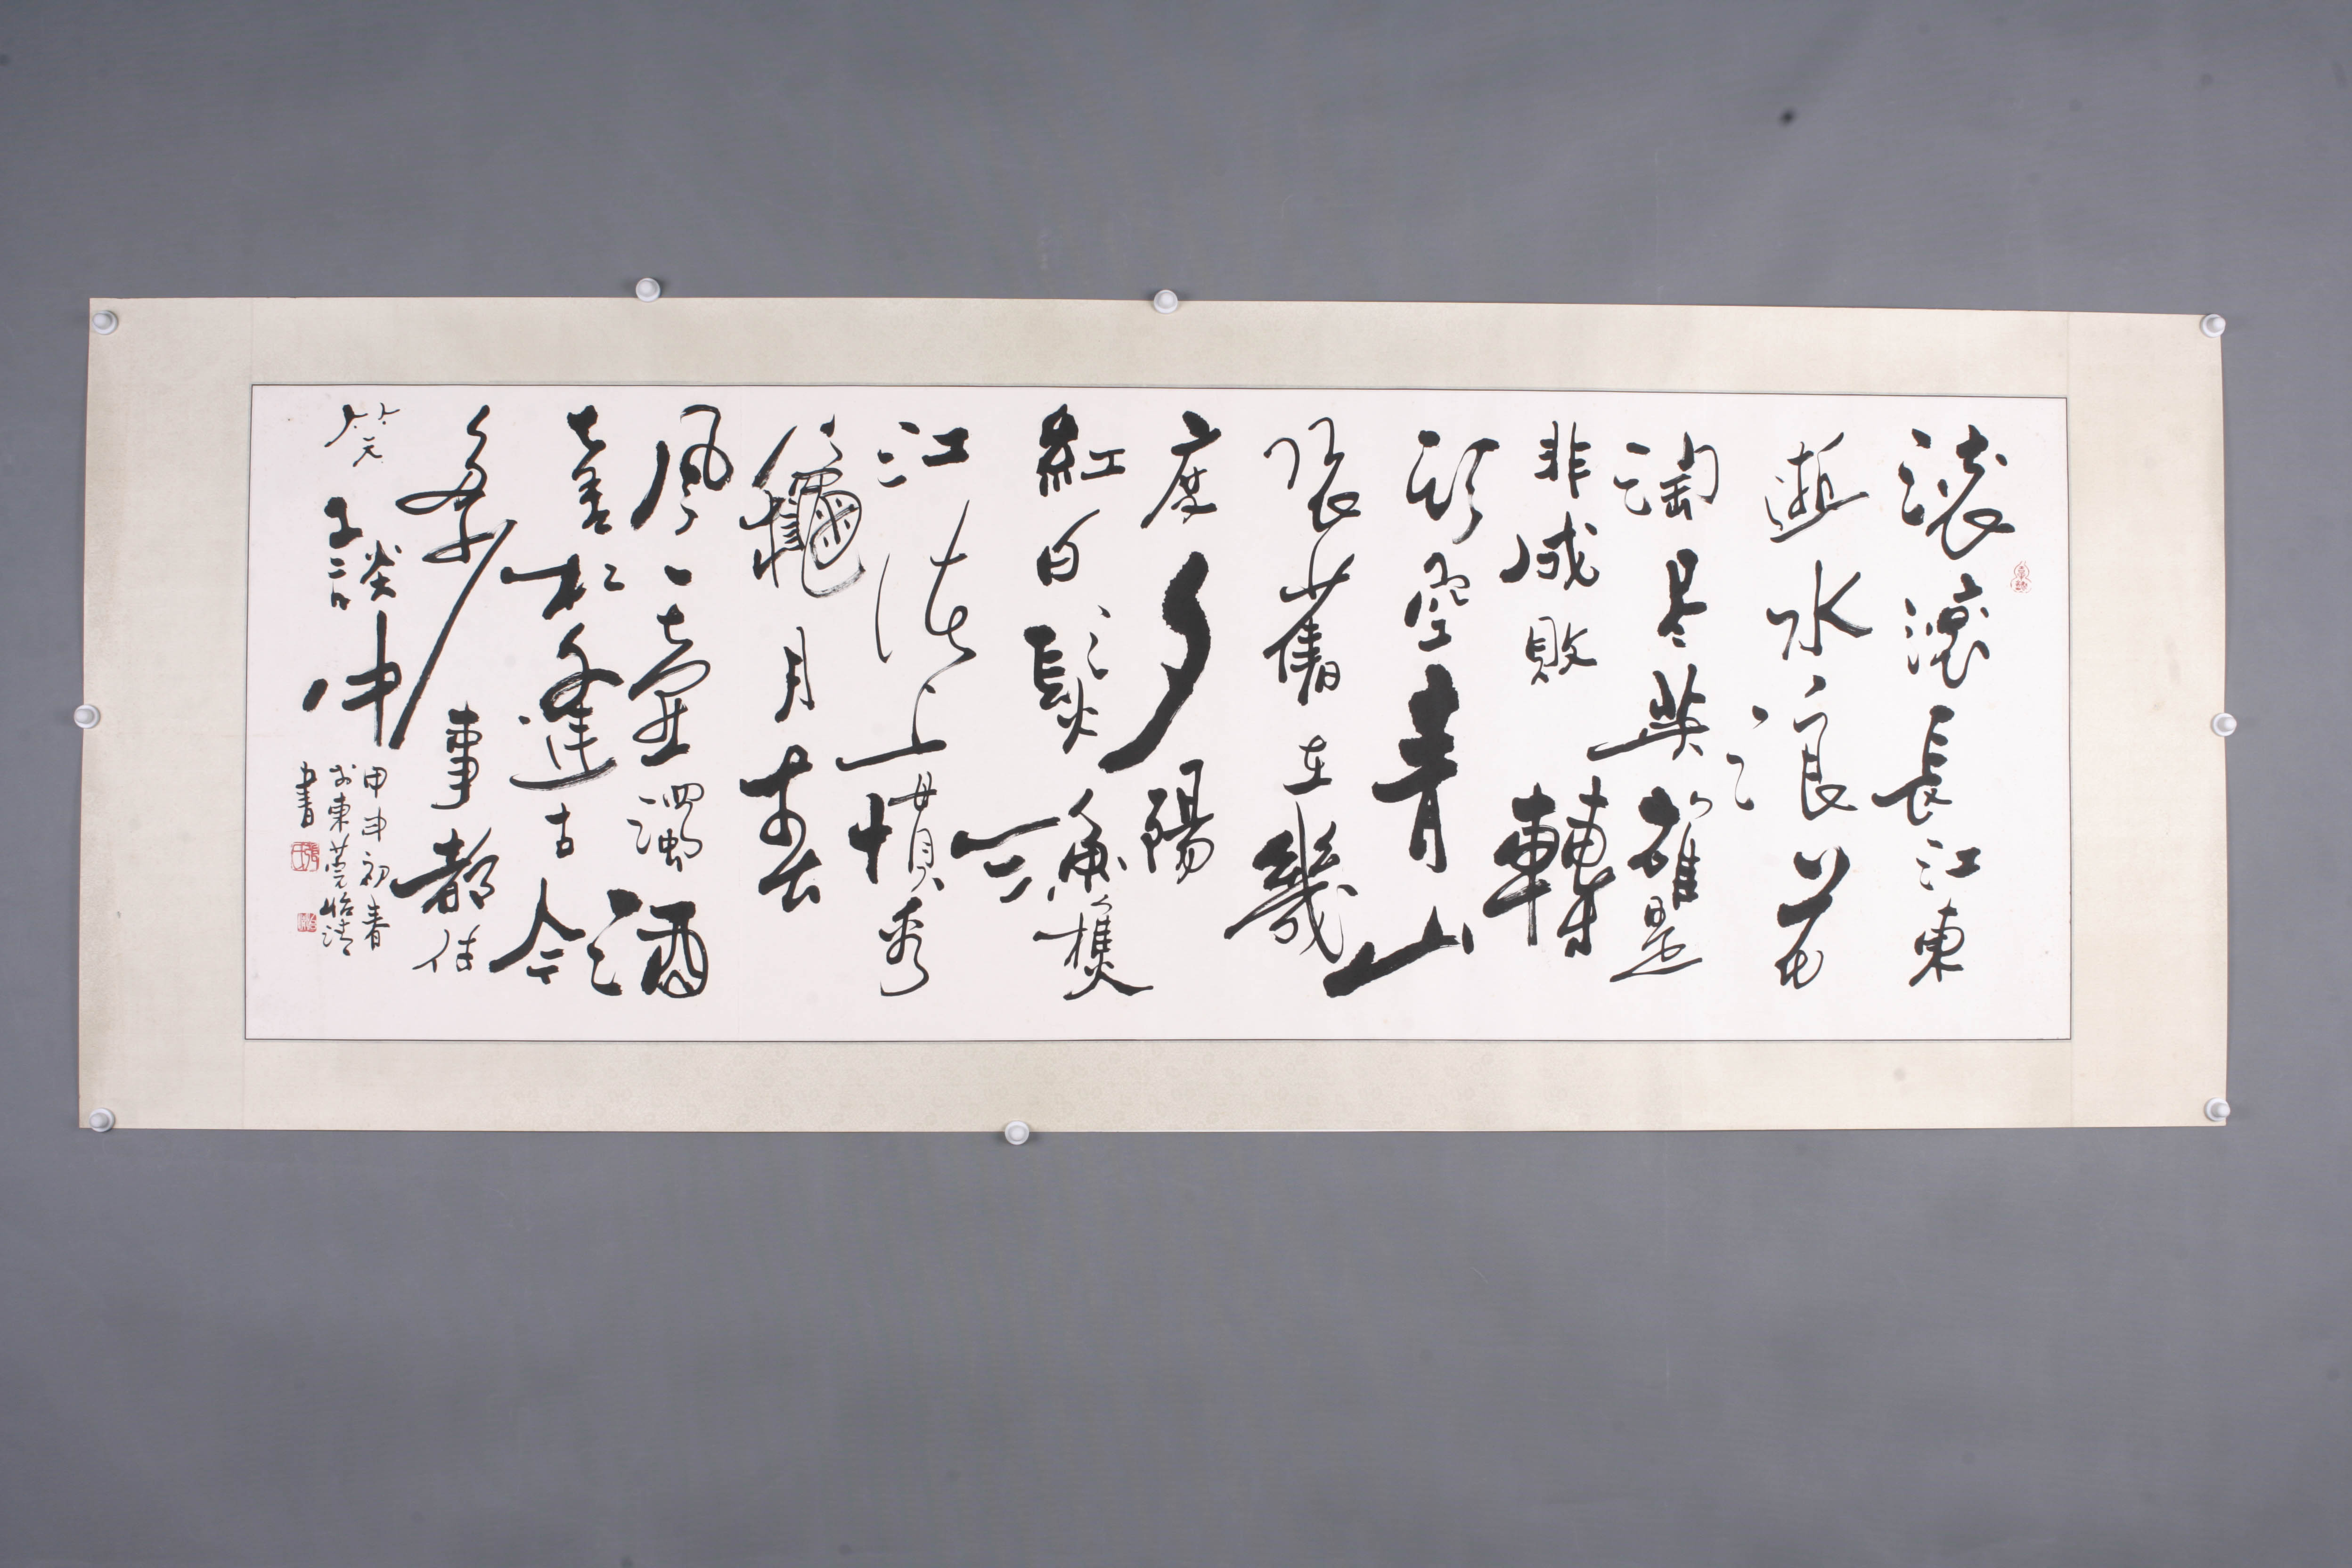 滚滚長江東
逝水浪花
淘尽英雄是
非成敗轉
頭空青山
依舊在幾
度夕陽
紅白髮漁樵
江渚上慣看
龝月春
風一壺濁酒
喜相逢古今
多少事都付
笑談中
甲申初春
於東莞怡清
書